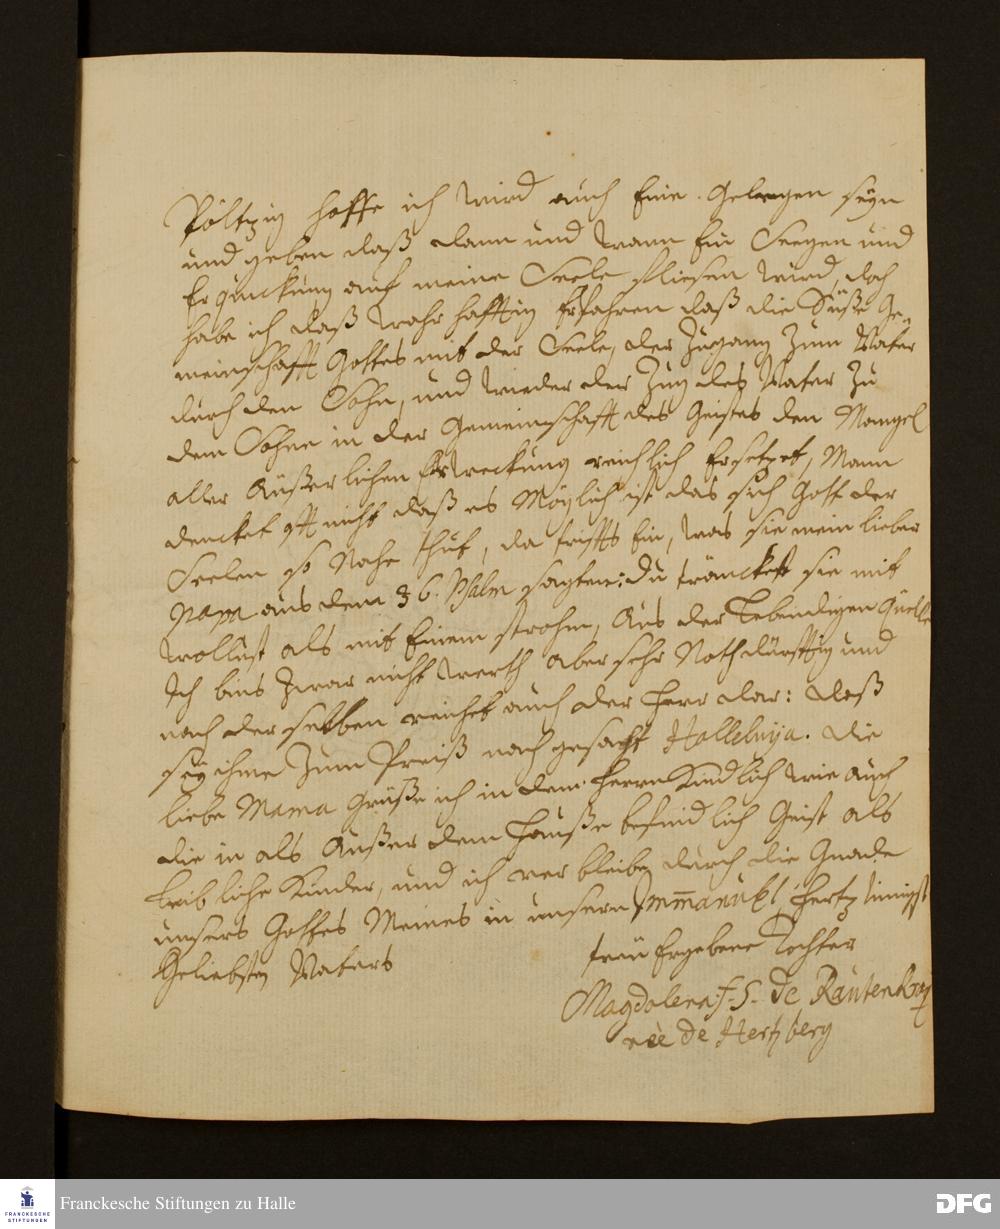 Pöltzig hoffe ich wird auch Eine gelegen seyn
und geben daß dann und wann Ein Seegen und
Erquickung auf meine Seele fliesen wird, doch
habe ich daß wahrhafftig Erfahren daß die Süße Ge-
meinschafft Gottes mit der Seele, der Zugang zum Vater
durch den Sohn, und wieder der Zug des Vater zu
dem Sohne in der Gemeinschafft des Geistes den Mangel
aller Äußerlichen Erweckung reichlich Ersetzet, Mann
dencket oft nicht daß es Möglich ist das sich Gott der
Seelen so Nahe thut, da triffts Ein, was sie mein lieber
Papa aus dem 36. Psalm sagten: Du tränckest sie mit
wollust als mit Einem strohm, Aus der Lebendigen Quelle
Ich bins zwar nicht werth aber sehr Nothdürfftig und
nach derselben reichet auch der Herr dar: daß
sey ihme zum Preiß nach gesacht Halleluija. Die
liebe Mama Grüße ich in dem Herrn Kindlich wie auch
die in als Außer dem Hauße befindlich Geist als
Leibliche Kinder, und ich verbleibe durch die Gnade
unsers Gottes Meines in unsern Immanuel Hertz innigst
Geliebsten Vaters
treu Ergebene Tochter
Magdalena F. S. de Rautenkranz
neè de Hertzberg
Franckesche Stiftungen zu Halle
FRANCKESCHE STIFTUNGEN
DFG